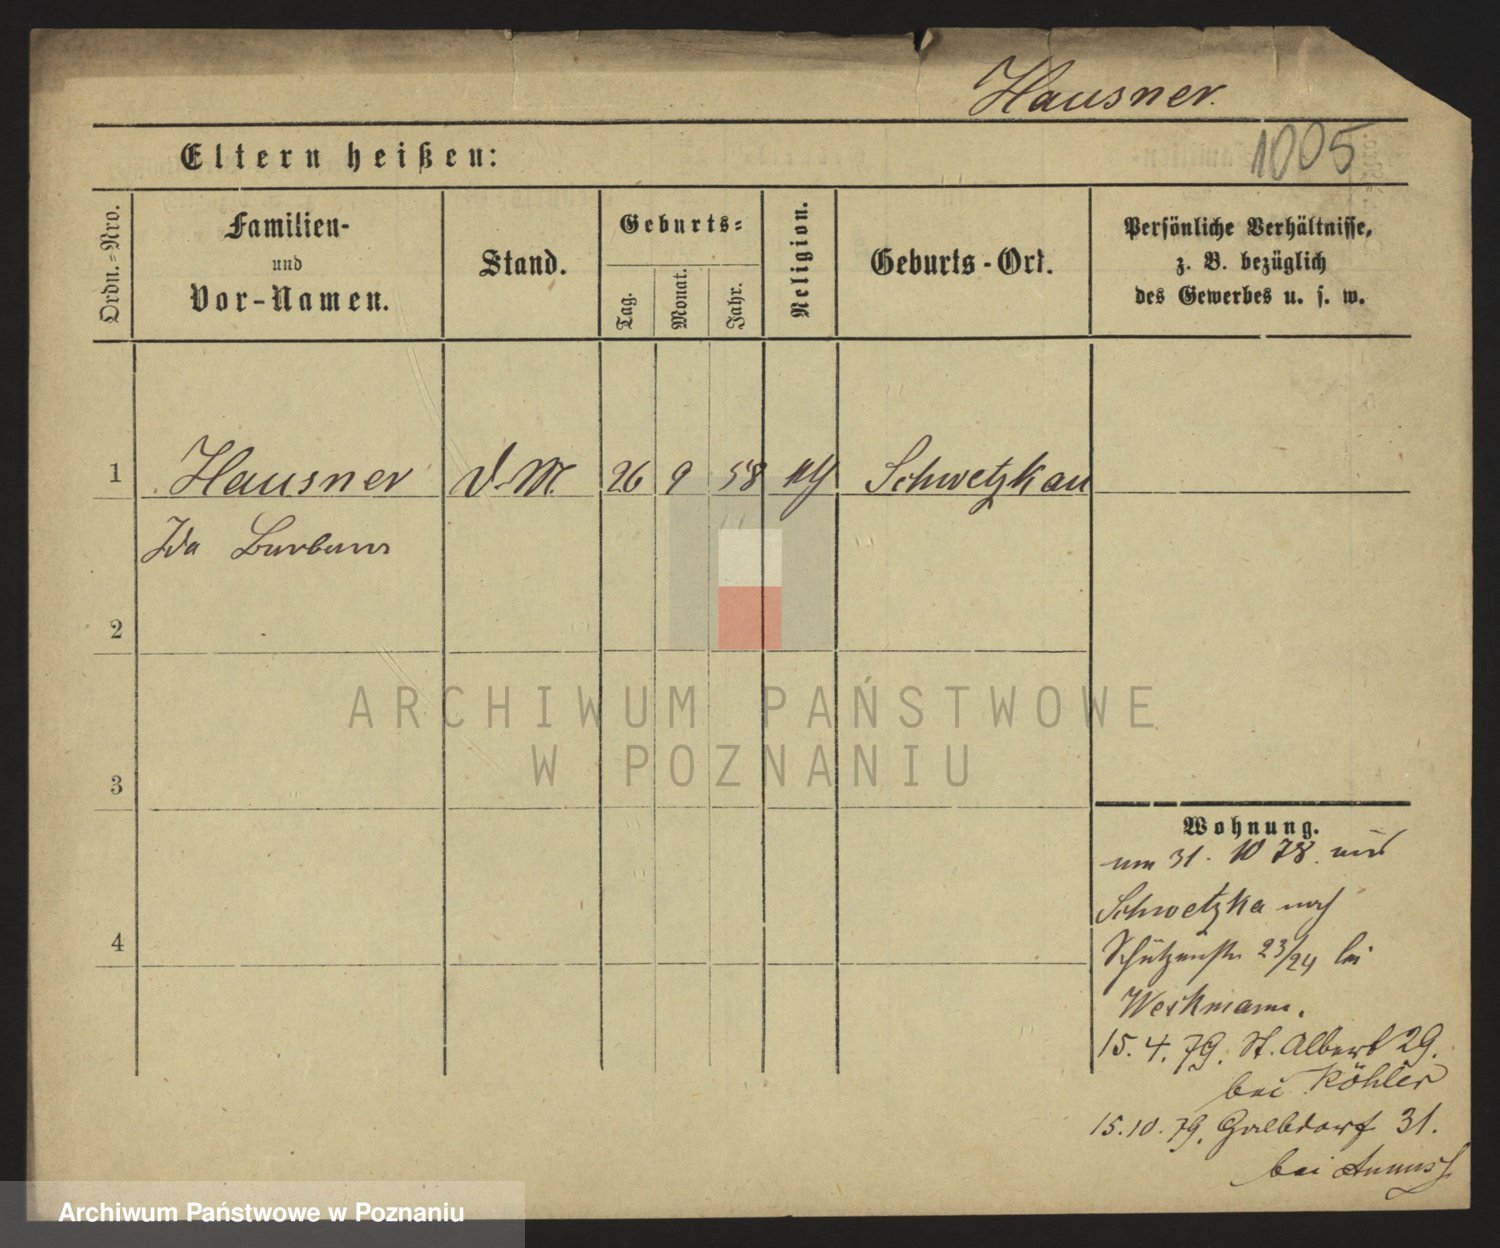 Hausner.
1005
Eltern heißen:
Ordn.-Nro.
Familien-
und
Vor-Namen.
Stand.
Geburts-
Tag.
Monat.
Jahr.
Religion.
Geburts-Ort.
Persönliche Verhältnisse,
z. B. bezüglich
des Gewerbes u. s. w.
1 Hausner D.M. 26 9 58 Schwetzkau
Ida Barbara
2
3
4
ARCHIWUM PAŃSTWOWE
W POZNANIU
Wohnung.
31. 10 78.
Schwetzka nach
Schützenstr 23/24 bei
Weikmann.
15. 4. 79. St. Adalbert 29.
bei Köhler
15. 10. 79. 31.
bei
Archiwum Państwowe w Poznaniu